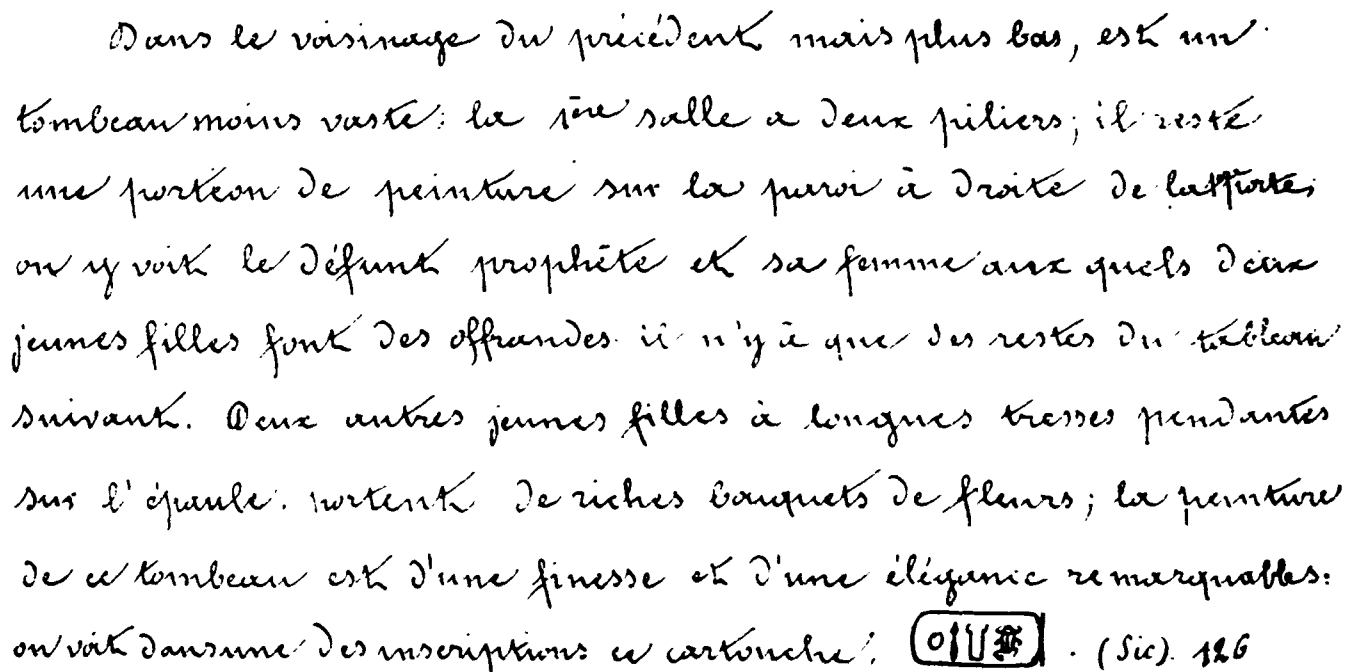 Dans le voisinage du précédent mais plus bas, est un
tombeau moins vaste: la 1ère salle a deux piliers; il reste
une portion de peinture sur la paroi à droite de la porte;
on y voit le défunt prophète et sa femme aux quels deux
jeunes filles font des offrandes. il n'y a que des restes du tableau
suivant. Deux autres jeunes filles à longues tresses pendantes
sur l'épaule. portent de riches bouquets de fleurs; la peinture
de ce tombeau est d'une finesse et d'une élégance remarquables:
on voit dans une des inscriptions ce cartouche: . (Sic). 126